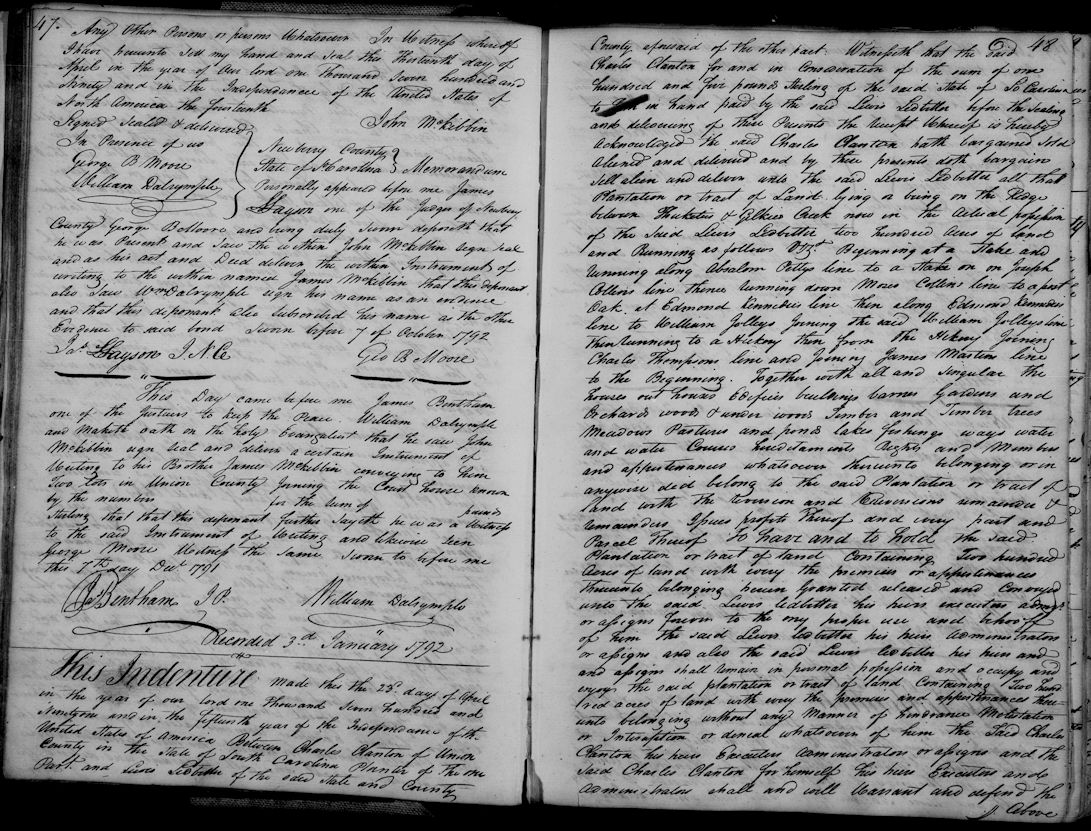 47.
Any Other Persons or persons Whatsoever In Witness whereof
I have hereunto Sett my hand and Seal this Thirteenth day of
April in the year of Our lord one thousand Seven hundred and
Ninety and in the Independance of the United States of
North America the fourteenth
Signed Sealed & delivered
John McKibbin
In Presence of us
George B Moore
William Dalrymple
Newbery County
State of So Carolina } Memorandum
Personally appeared before me James
Mayson one of the Judges of Newbery
County George B Moore and being duly Sworn deposeth that
he was Present and Saw the within John McKibbin sign seal
and as his act and Deed deliver the within Instrument of
writing to the within named James McKibbin that this deponant
also Saw Wm Dalrymple sign his name as an evidence
and that this deponant also Subscribed his name as the other
Evidence to said bond Sworn before 7 of October 1792
Jas Mayson J N C
Geo B Moore
This Day came before me James Bentham
one of the Justices to keep the Peace William Dalrymple
and Maketh oath on the holy Evangelist that he saw John
McKibbin sign seal and deliver a certain Instrument of
Writing to his Brother James McKibbin conveying to him
Two Lots in Union County Joining the Court house known
by the numbers for the Sum of pounds
Sterling that that this deponant further Sayeth he was a Witness
to the said Instrument of Writing and likewise seen
George Moore Witness the Same Sworn to before me
this 7th day Decr 1791
Js Bentham J.P.
William Dalrymple
Recorded 3d January 1792
This Indenture made this the 23d day of April
in the year of our lord one Thousand Seven hundred and
Ninetyone and in the fifteenth year of the Independance of the
United States of America Between Charles Clanton of Union
County in the State of South Carolina Planter of the one
Part and Lewis Ledbetter of the said State and County
48
County aforesaid of the other part Witnesseth that the Said
Charles Clanton for and in Consideration of the sum of one
hundred and five pounds Sterling of the said State of So Carolina
to him in hand paid by the said Lewis Ledbetter before the Sealing
and delivering of these Presents the Receipt Whereof is hereby
Acknowledged the said Charles Clanton hath bargained Sold
Aliened and delivered and by these presents doth bargain
Sell alien and deliver unto the said Lewis Ledbetter all that
Plantation or tract of Land lying & being on the Ridge
between Thicketee & Gilkies Creek now in the actual possession
of the Said Lewis Ledbetter two hundred acres of land
and Running as follows Vizt Beginning at a Stake and
running along Absalom Pettys line to a Stake on on Joseph
Collins line thence running down Moses Collins line to a post
Oak at Edmond Kennikees line then along Edmond Kennikees
line to William Jolleys Joining the said William Jolleys line
then running to a Hickory then from the Hickory Joining
Charles Thompsons line and Joining James Martins line
to the Beginning. Together with all and Singular the
houses out houses Edifices buildings barnes Gardens and
Orchards woods & under woods Timber and Timber trees
Meadows Pastures and ponds lakes fishings ways water
and water Courses hereditaments Rights and Members
and appurtenances whatsoever thereunto belonging or in
anywise ded belong to the said Plantation or tract of
land with the reversion and Reversions remainder &
remainders Issues profits thereof and every part and
Parcel thereof To have and to hold the said
Plantation or tract of land Containing Two hundred
acres of land with every the premises or appurtenances
thereunto belonging herein Granted released and Conveyed
unto the said Lewis ledbetter his heirs executors admrs
or assigns forever to the only proper use and behoof
of him the said Lewis Ledbetter his heirs Administrators
or assigns and also the said Lewis ledbetter his heirs and
and assigns shall remain in personal possession and occupy and
enjoy the said plantation or tract of land Containing Two hund
red acres of land with every the premises and appurtenances there
unto belonging without any Manner of hindrance Molestation
or Interuption or denial whatsoever of him the Said Charles
Clanton his heirs Executors administrators or assigns and the
Said Charles Clanton for himself his heirs Executors and
administrators shall and will Warrant and defend the
Above